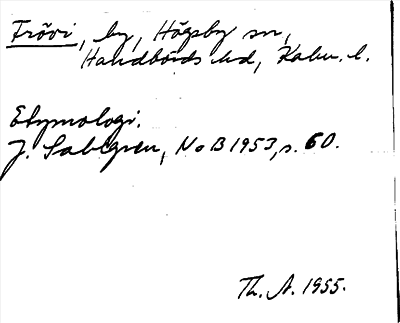 Frövi, by, Högsby sn,
Handbörds hd, Kalm. l.
Etymologi.
J. Sahlgren, NoB 1953, s. 60.
Th. A. 1955.